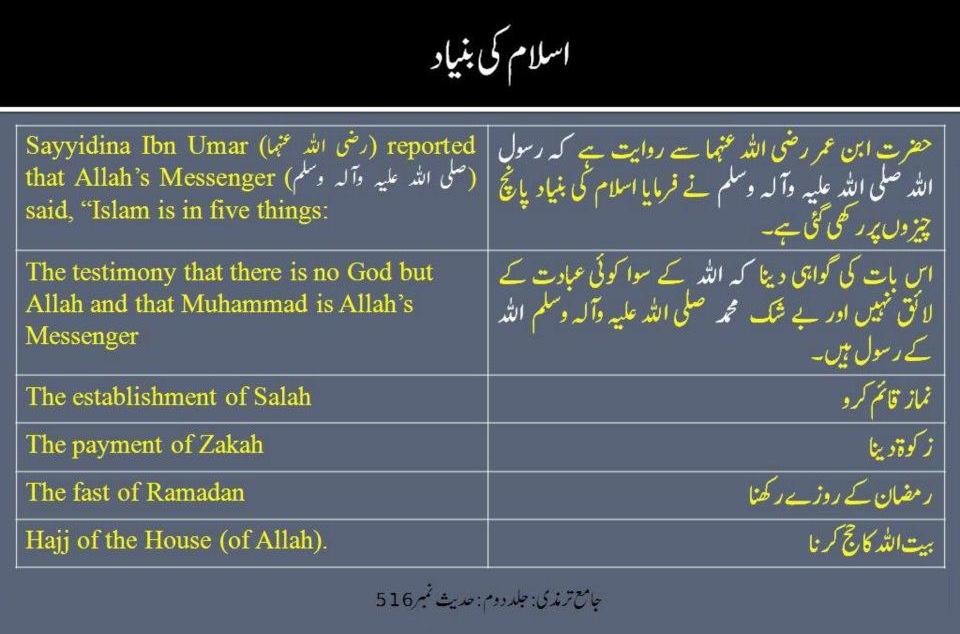 اسلام کی بنیاد
Sayyidina Ibn Umar (رضی اللہ عنہما) reported
that Allah’s Messenger (صلی اللہ علیہ وآلہ وسلم)
said, “Islam is in five things:
حضرت ابن عمر رضی اللہ عنہما سے روایت ہے کہ رسول
اللہ صلی اللہ علیہ وآلہ وسلم نے فرمایا اسلام کی بنیاد پانچ
چیزوں پر رکھی گئی ہے۔
The testimony that there is no God but
Allah and that Muhammad is Allah’s
Messenger
اس بات کی گواہی دینا کہ اللہ کے سوا کوئی عبادت کے
لائق نہیں اور بے شک محمد صلی اللہ علیہ وآلہ وسلم اللہ
کے رسول ہیں۔
The establishment of Salah
نماز قائم کرو
The payment of Zakah
زکوۃ دینا
The fast of Ramadan
رمضان کے روزے رکھنا
Hajj of the House (of Allah).
بیت اللہ کا حج کرنا
جامع ترمذی: جلد دوم: حدیث نمبر 516